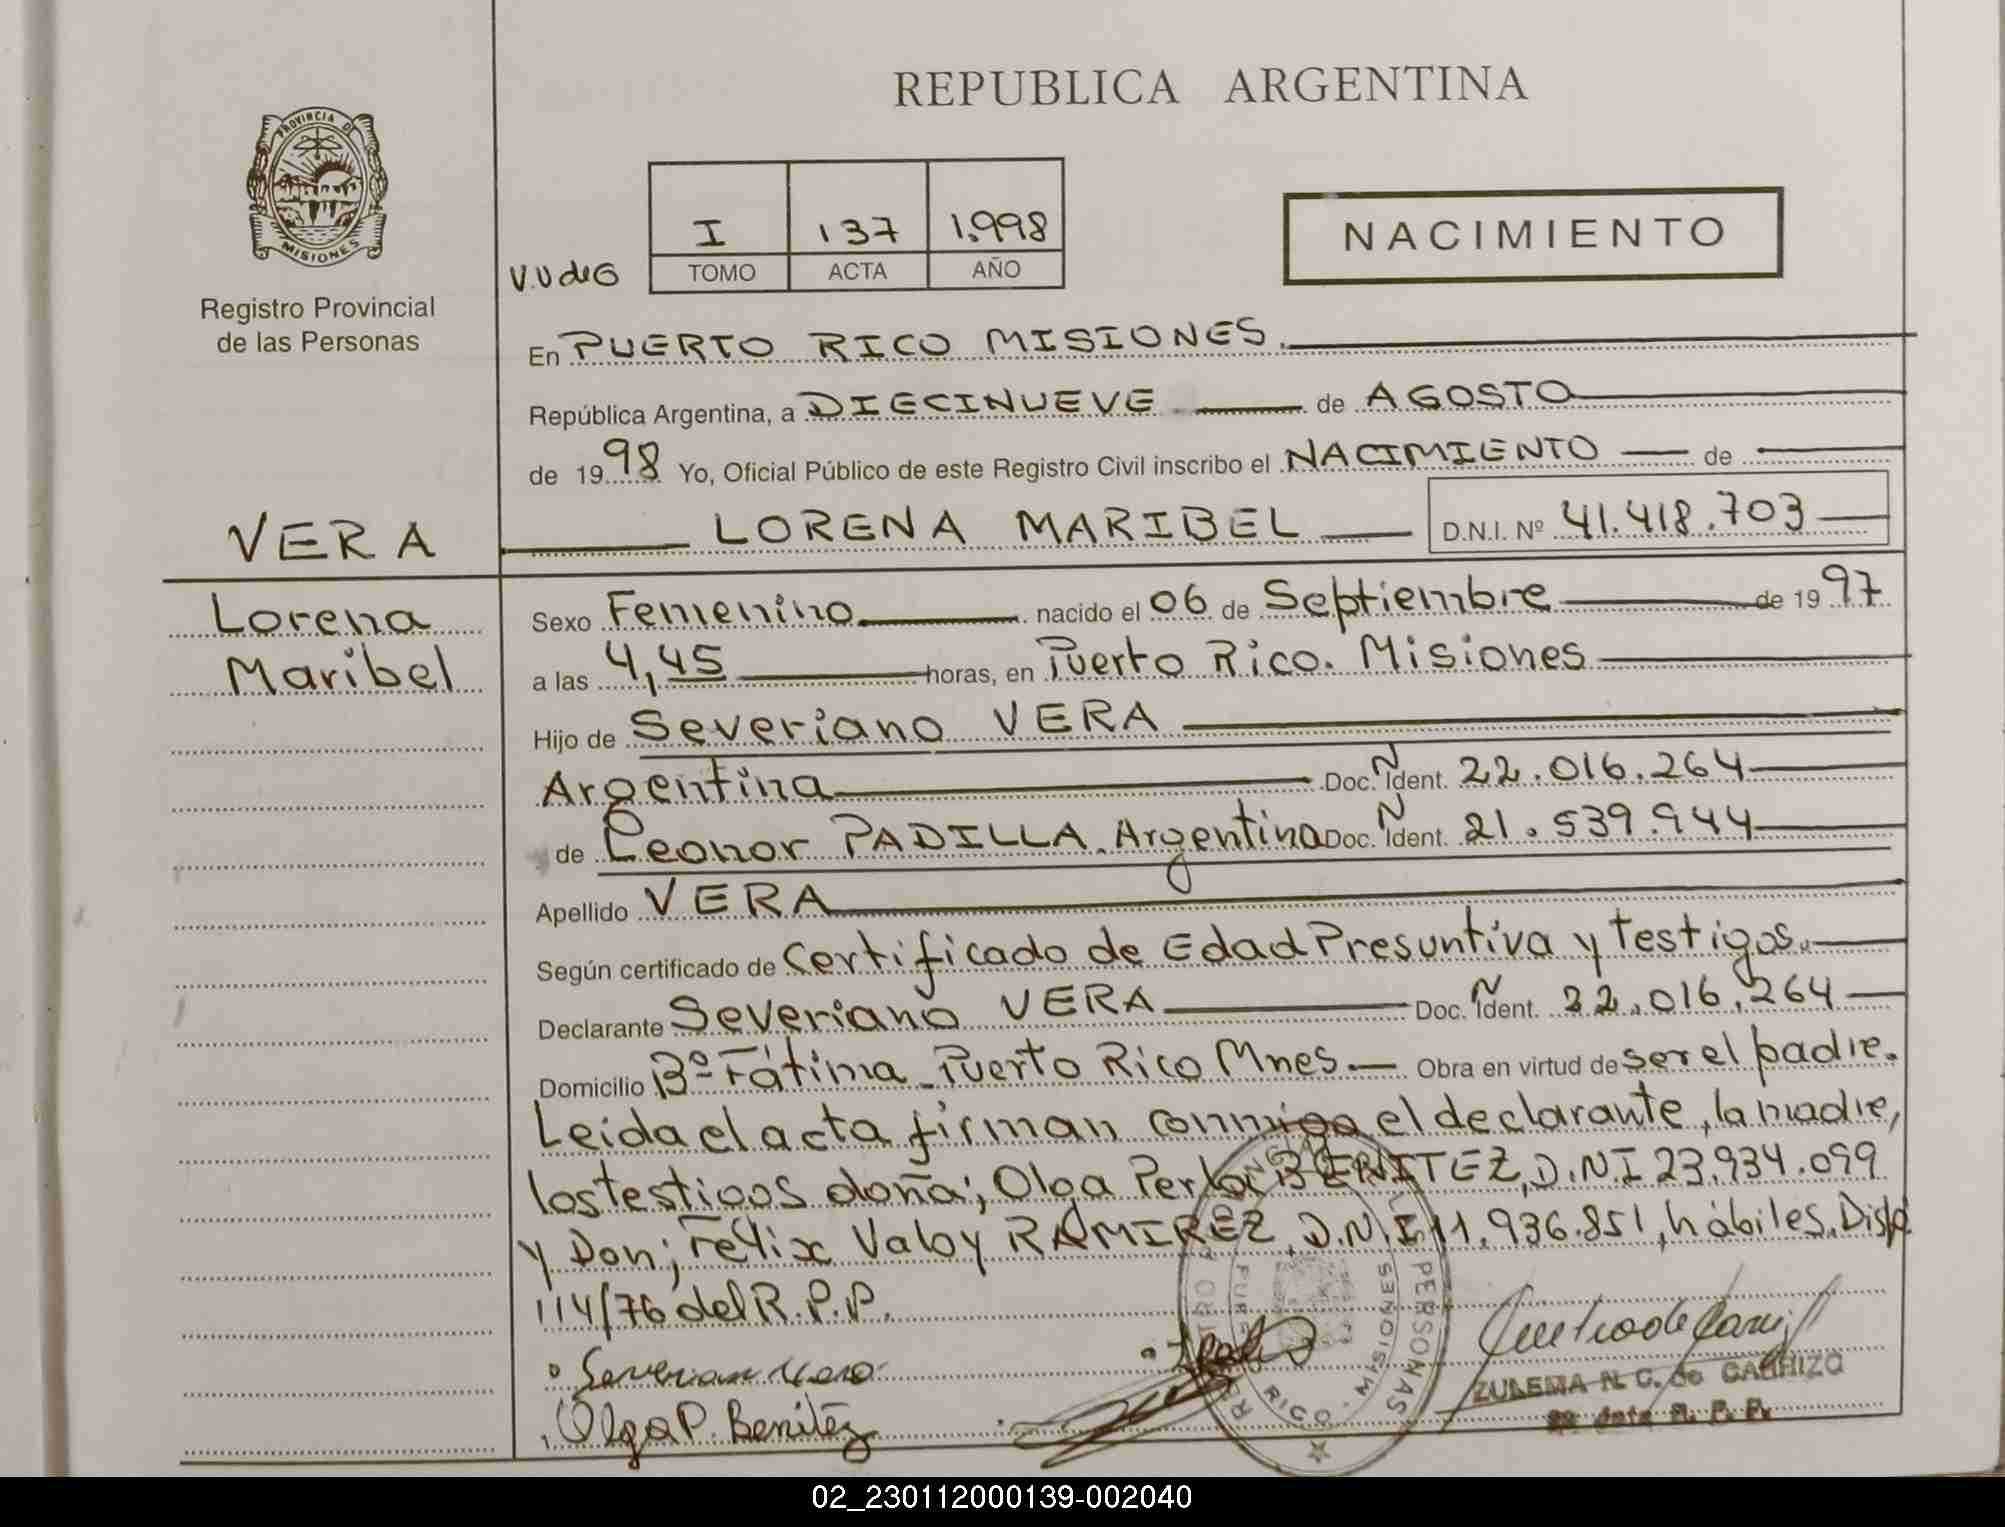 REPUBLICA ARGENTINA
PROVINCIA DE
MISIONES
Registro Provincial
de las Personas
V.U de G
I 137 1.998
TOMO ACTA AÑO
NACIMIENTO
En PUERTO RICO MISIONES.
República Argentina, a DIECINUEVE de AGOSTO
de 1998 Yo, Oficial Público de este Registro Civil inscribo el NACIMIENTO de
VERA
LORENA MARIBEL D.N.I. Nº 41.418.703
Lorena
Maribel
Sexo Femenino nacido el 06 de Septiembre de 1997
a las 4,45 horas, en Puerto Rico. Misiones
Hijo de Severiano VERA
Argentina Doc. Ñ Ident. 22.016.264
de Leonor PADILLA. Argentina Doc. Ñ Ident. 21.539.944
Apellido VERA
Según certificado de Certificado de Edad Presuntiva y testigos.
Declarante Severiano VERA Doc. Ñ Ident. 22.016.264
Domicilio Bº Fátima Puerto Rico Mnes. Obra en virtud de ser el padre.
Leida el acta firman conmigo el declarante, la madre,
los testigos doña; Olga Perla BENITEZ, D.N.I 23.934.099
y Don; Felix Valoy RAMIREZ, D.N.I 11.936.851, hábiles. Disp.
114/76 del R.P.P.
Severiano Vera
Olga P. Benitéz
PERSONAS
RICO - MISIONES
ZULEMA N. C. de CARRIZO
02_230112000139-002040